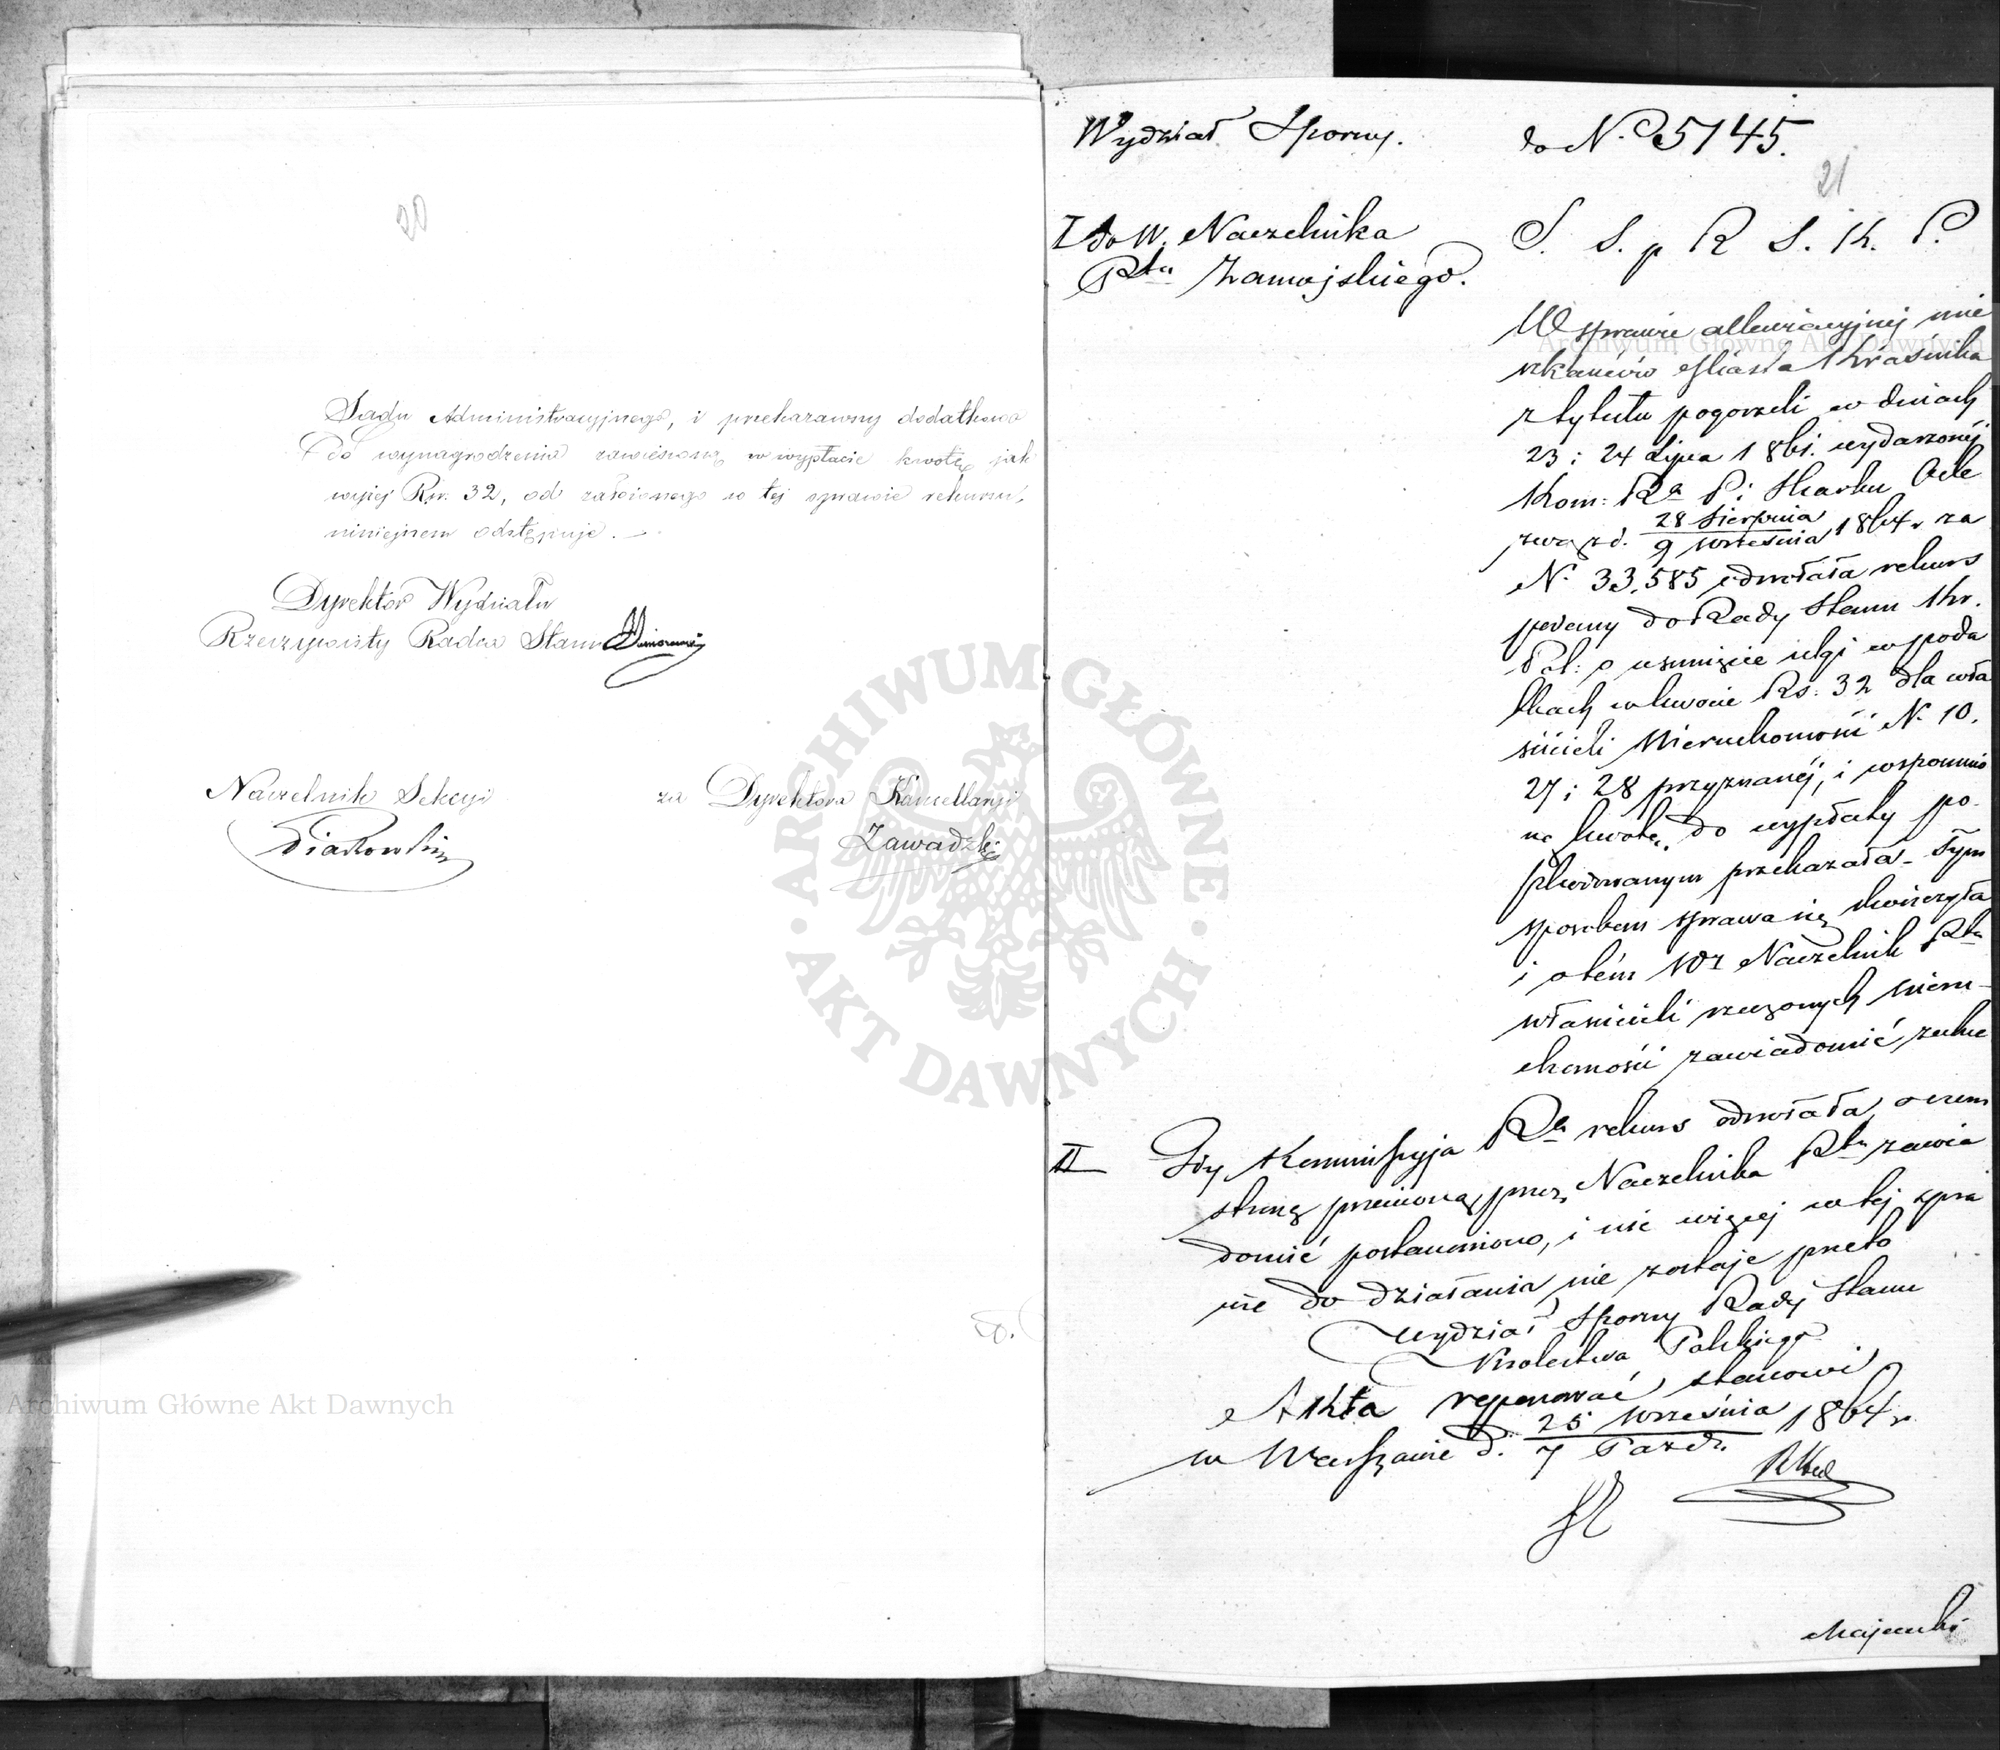 20
Sądu Administracyjnego, i przekazawszy dodatkowo
do wynagrodzenia zawieszoną w wypłacie kwotę jak
wyżej Rsr. 32, od założonego w tej sprawie rekursu,
niniejszem odstępuje. —
Dyrektor Wydziału
Rzeczywisty Radca Stanu
Naczelnik Sekcyi
Piątkowski
za Dyrektora Kancellaryi
Zawadzki
Wydział Sporny.
do N. 5145.
21
I do W. Naczelnika
Ptu Zamojskiego.
S. S. p R S. K. P.
W sprawie allewiacyjnej mie
szkańców Miasta Krasnika
z tytułu pogorzeli w dniach
23 i 24 Lipca 1861. wydarzonej
Kom: Rz P: i Skarbu Ode
zwą z d. 28 Sierpnia / 9 Września 1864 r za
N. 33,585 odwołała rekurs
podany do Rady Stanu Kr.
Pol: o usunięcie ulgi w poda
tkach w kwocie Rs: 32 dla wła
ścicieli Nieruchomości N. 10,
27 i 28 przyznanej, i wspomnio
ną kwotę do wypłaty po-
szkodowanym przekazała - Tym
sposobem sprawa się skończyła
i o tém Wz Naczelnik Ptu
właścicieli rzeczonych nieru-
chomości zawiadomić zechce
II Gdy Kommissyja Rz rekurs odwołała, o czem
stronę przeciwną przez Naczelnika Ptu zawia
domić postanowiono, i nic więcej w tej spra
wie do działania nie zostaje przeto
Wydział Sporny Rady Stanu
Królestwa Polskiego
Akta reponować stanowi
w Warszawie d. 25 Września / 7 Paźdr. 1864 r.
Majewski
Archiwum Główne Akt Dawnych
Archiwum Główne Akt Dawnych
ARCHIWUM GŁÓWNE · AKT DAWNYCH ·